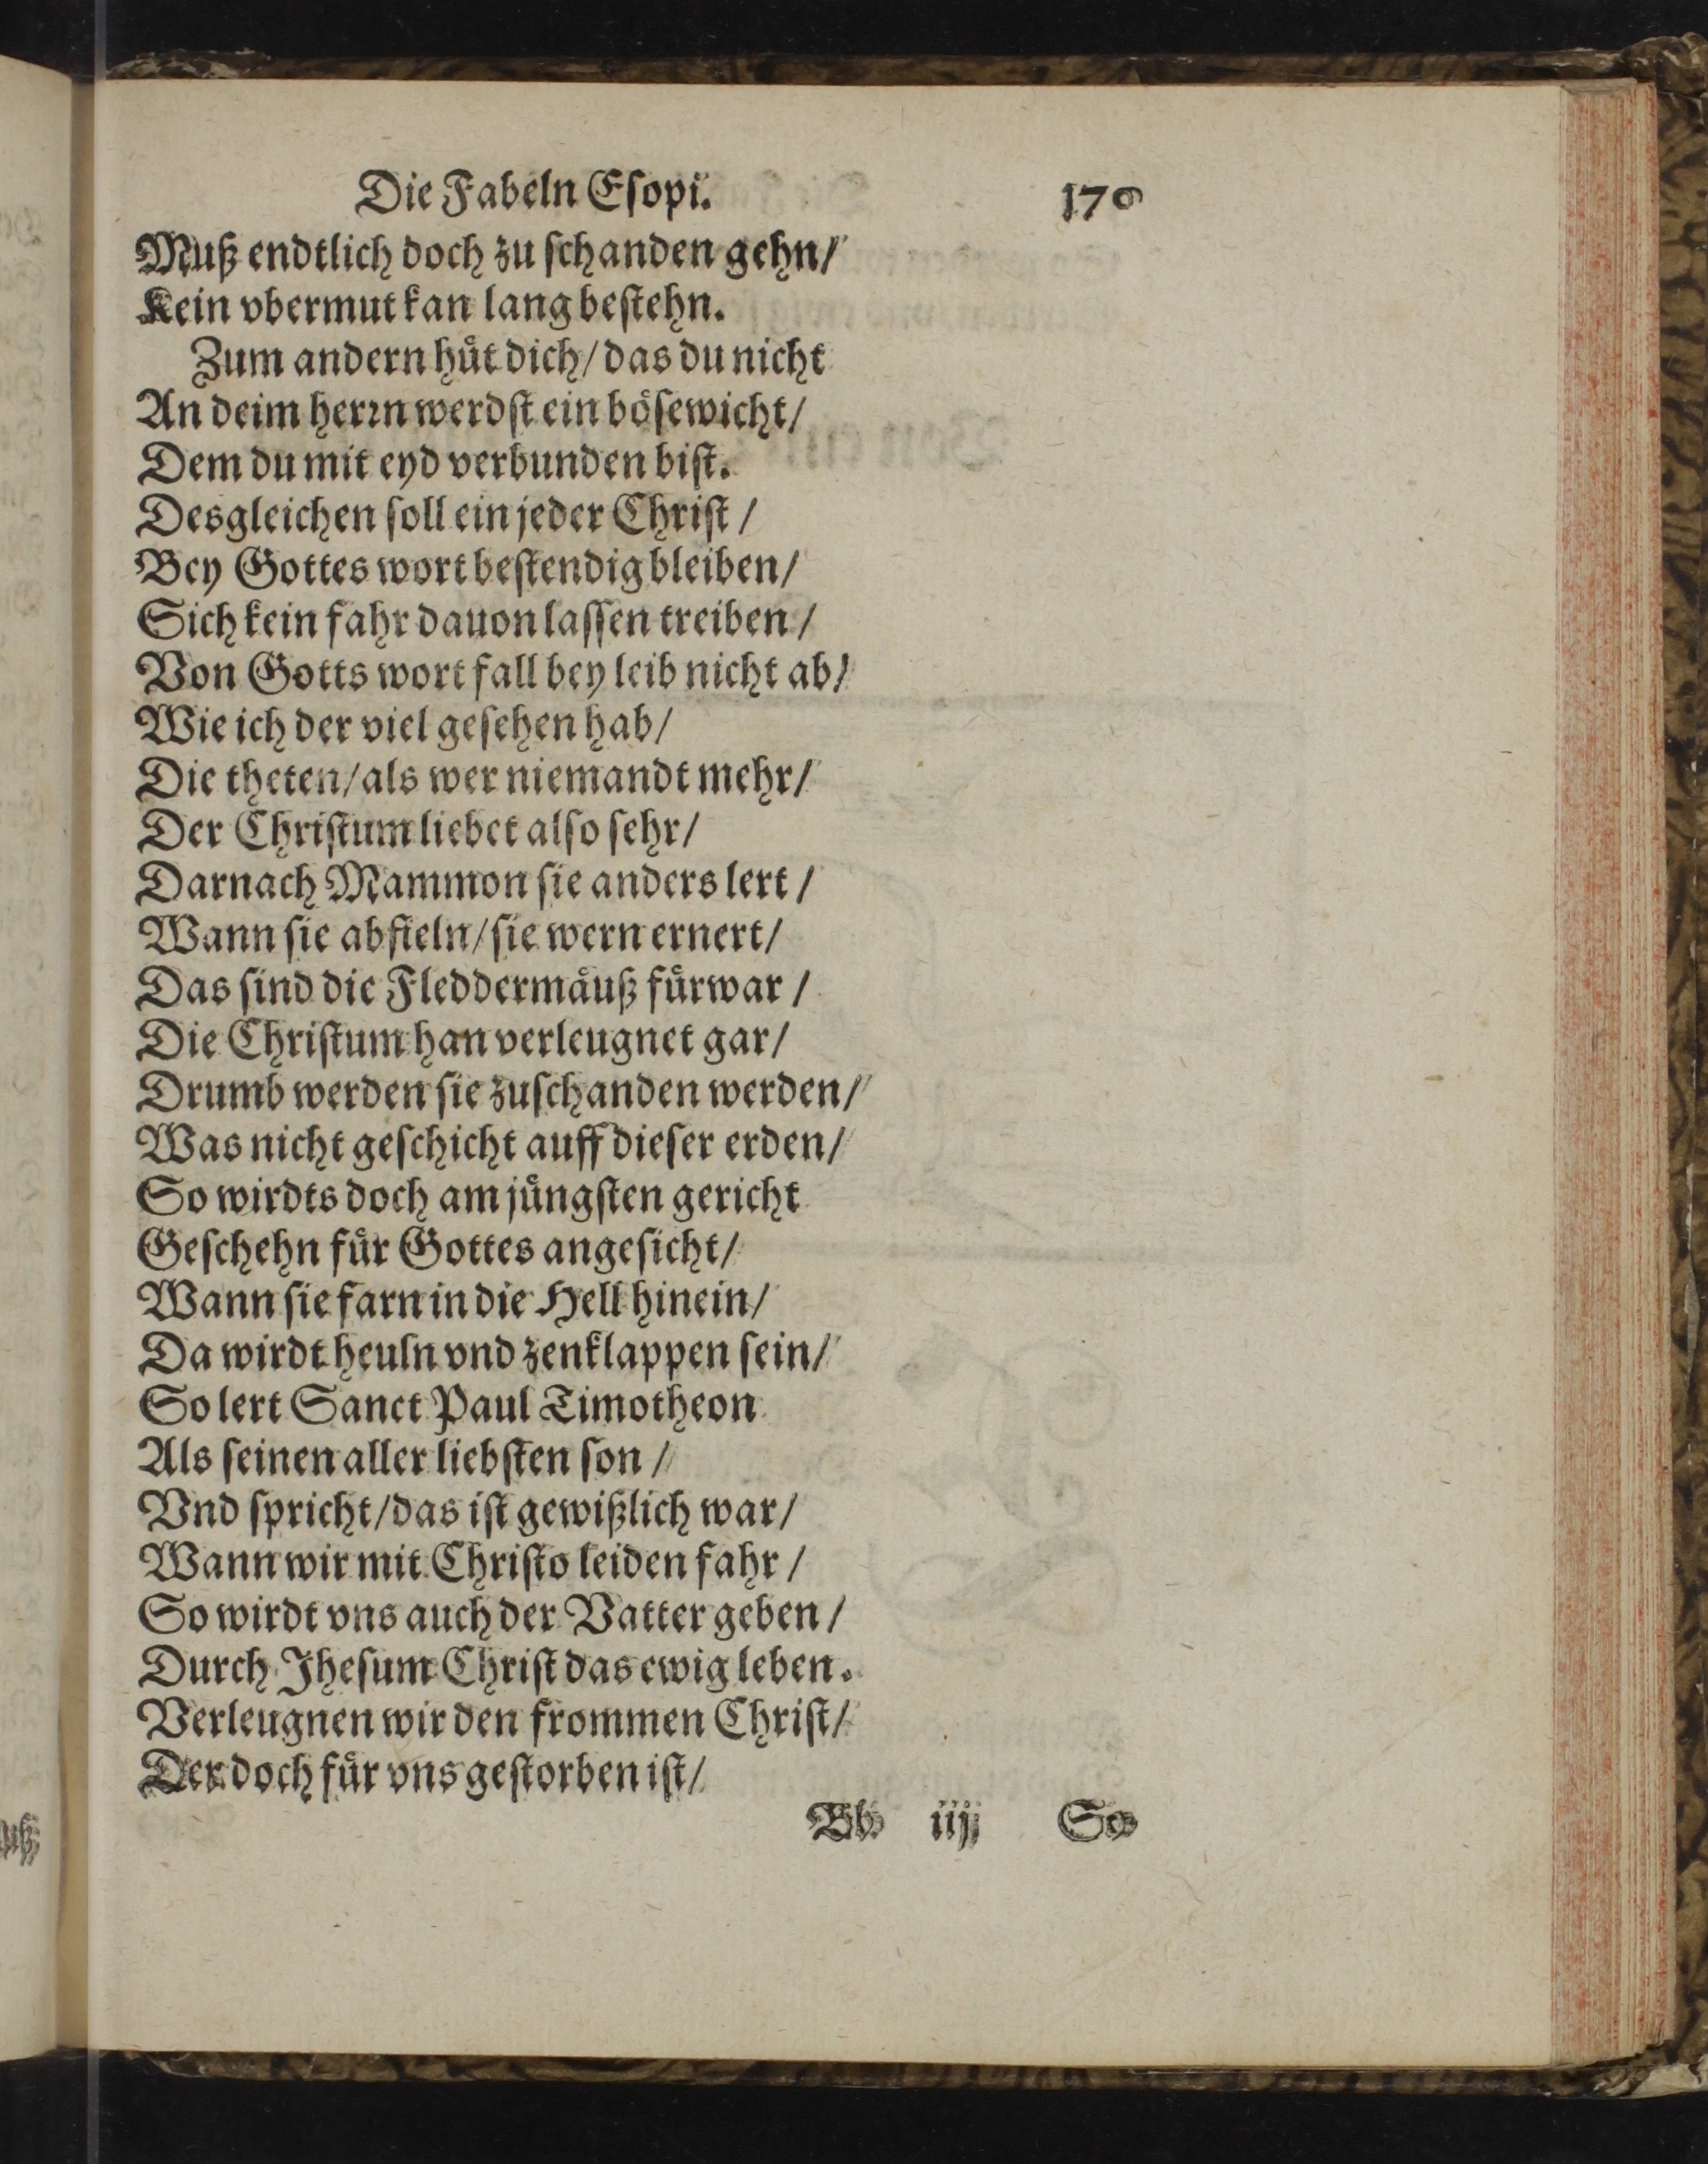 Die Fabeln Eſopi. 170
Muß endtlich doch zu ſchanden gehn/
Kein vbermut kan lang beſtehn.
Zum andern huͤt dich/ das du nicht
An deim herꝛn werdſt ein boͤſewicht/
Dem du mit eyd verbunden biſt.
Desgleichen ſoll ein jeder Chriſt /
Bey Gottes wort beſtendig bleiben/
Sich kein fahr dauon laſſen treiben /
Von Gotts wort fall bey leib nicht ab/
Wie ich der viel geſehen hab/
Die theten/ als wer niemandt mehr/
Der Chriſtum liebet alſo ſehr/
Darnach Mammon ſie anders lert /
Wann ſie abfieln/ ſie wern ernert/
Das ſind die Fleddermaͤuß fuͤrwar /
Die Chriſtum han verleugnet gar/
Drumb werden ſie zuſchanden werden/
Was nicht geſchicht auff dieſer erden/
So wirdts doch am juͤngſten gericht
Geſchehn fuͤr Gottes angeſicht/
Wann ſie farn in die Hell hinein/
Da wirdt heuln vnd zenklappen ſein/
So lert Sanct Paul Timotheon
Als ſeinen aller liebſten ſon /
Vnd ſpricht/ das iſt gewißlich war/
Wann wir mit Chriſto leiden fahr /
So wirdt vns auch der Vatter geben /
Durch Jheſum Chriſt das ewig leben.
Verleugnen wir den frommen Chriſt/
Der doch fuͤr vns geſtorben iſt/
Bb iij So